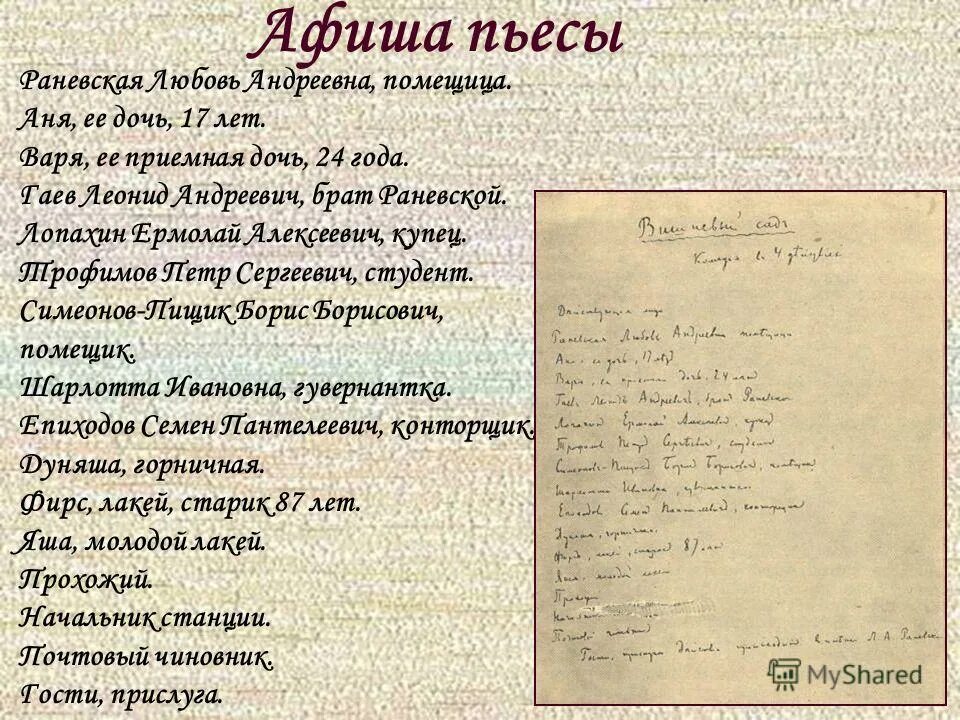 Афиша пьесы
Раневская Любовь Андреевна, помещица.
Аня, ее дочь, 17 лет.
Варя, ее приемная дочь, 24 года.
Гаев Леонид Андреевич, брат Раневской.
Лопахин Ермолай Алексеевич, купец.
Трофимов Петр Сергеевич, студент.
Симеонов-Пищик Борис Борисович,
помещик.
Шарлотта Ивановна, гувернантка.
Епиходов Семен Пантелеевич, конторщик.
Дуняша, горничная.
Фирс, лакей, старик 87 лет.
Яша, молодой лакей.
Прохожий.
Начальник станции.
Почтовый чиновник.
Гости, прислуга.
Вишневый садъ
Комедiя въ 4 действiях
Действующiя лица
Раневская Любовь Андреевна помещица
Аня, ее дочь, 17 лет
Варя, ея приемная дочь, 24 лет
Гаев Леонид Андреевич, брат Раневской
Лопахин Ермолай Алексеевич, купец
Трофимов Петр Сергеевич, студент
Симеонов-Пищик Борис Борисович, помещик
Шарлотта Ивановна, гувернантка
Епиходов Семен Пантелеевич, конторщик
Дуняша, горничная.
Фирс, лакей, старик 87 лет
Яша, молодой лакей
Прохожий
Почтовый чиновник
Гости, прислуга
Действие происходит в имении Л. А. Раневской
MyShared